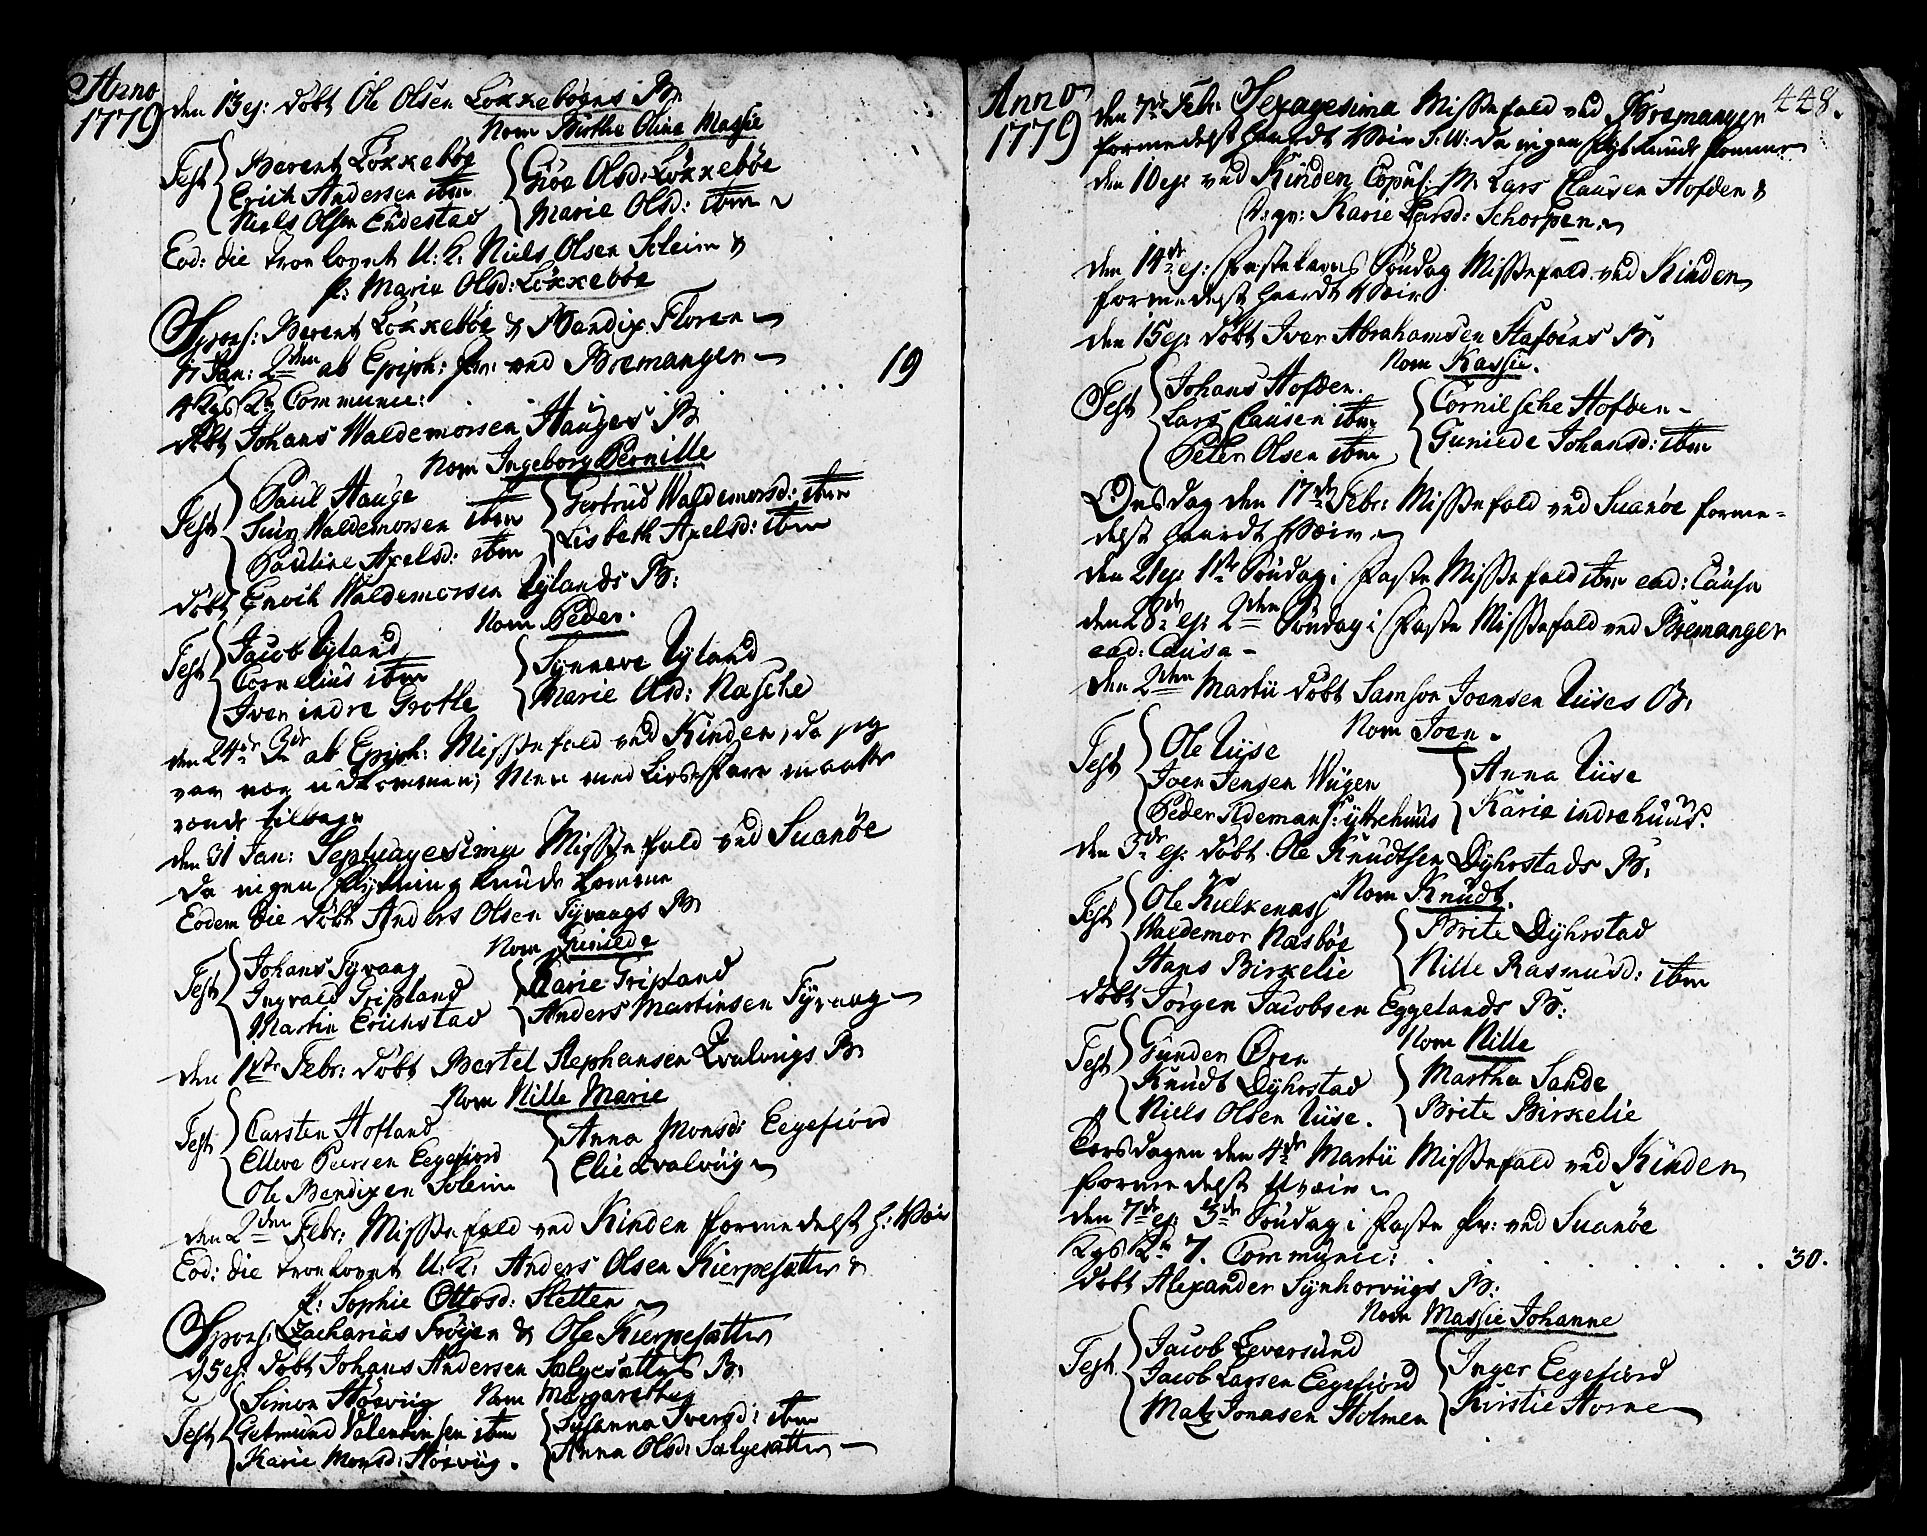 Anno
1779
den 13 ej: döbt Ole Olsen Lökkeböens B.
Nom Birthe Olina Massie
Test Berent Lökkeböe
Erich Andersen ibm
Niels Olsen Endestad
Giöe Olsd: Lökkeböe
Marie Olsd: ibm
Eod: die trolovet U: K: Niels Olsen Soleim &
P: Marie Olsd: Lökkeböe
Spons: Berent Lökkeböe & Bendix Floren
17 Jan: 2den ab Epiph: Pr: ved Bremanger
Communic: . . . 19
döbt Johans Waldemorsen Hauges B
Nom Ingeborg Pernille
Test Paul Hauge
Siur Waldemorsen ibm
Pauline Axelsd: ibm
Gertrud Waldemorsd: ibm
Lisbeth Axelsd: ibm
döbt Enoch Waldemorsen Nylands B:
Nom Peder.
Test Jacob Nyland
Cornelius ibm
Iver indre Grotle
Synneve Nyland
Marie Olsd: Nasche
den 24de 3de ab Epiph: Missefald ved Kinden, da jeg
var vel udkommen; Men med Livs-fare maatte
vende tilbage
den 31 Jan: Septuagesima Missefald ved Suanöe
da ingen Flytning kunde komme
Eodem die döbt Anders Olsen Tyvaags B
Nom Guniede
Test Johans Tyvaag
Ingvald Gripland
Martin Erichstad
Karie Gripland
Anders Martinsen Tyvaag
den 1ste Febr: döbt Bertel Stephansen Qvalvigs B
Nom Nille Marie
Test Carsten Hofland
Elleve Peersen Eegefiord
Ole Bendixen Soleim
Anna Monsd: Eegefiord
Elie Qvalviig
den 2den Febr: Missefald ved Kinden formedelst h: Veir
Eod: die trolovet U: K: Anders Olsen Kierpesætter &
P: Sophie Ottosd: Stetten
Spons: Zacharias Fröijen & Ole Kierpesætter
d 5 ej: döbt Johans Andersen Sælgesætters B
Nom Margarethe
Test Simon Hösviig
Getmund Valentinsen ibm
Karie Monsd: Hösviig.
Susanna Iversd: ibm
Anna Olsd: Sælgesætter
Anno
1779
448.
den 7de Feb: Sexagesima Missefald ved Bremanger
formedelst haardt Veir S. W: da ingen Flytkunde komme
den 10 ej: ved Kinden Copul: M. Lars Clausen Hofden &
P: gv: Karie Larsd: Schorpen.
den 14de ej: Fastelavns Söndag Missefald ved Kinden
formedelst haardt Veir
den 15 ej: döbt Iver Abrahamsen Stafoens B.
Nom Kassie.
Test Johans Hofden.
Lars Clausen ibm
Peter Olsen ibm
Cornilsche Hofden
Guniede Johansd: ibm
Onsdag den 17de Febr: Missefald ved Suanöe forme=
delst haardt Veir
den 21 ej: 1ste Söndag i Faste Missefald ibm ead: Causa
den 28de ej: 2den Söndag i Faste Missefald ved Bremanger
ead: Causa
den 2den Martii döbt Samson Joensen Niises B.
Nom Joen.
Test Ole Niise
Joen Jensen Wügen
Peder Ildemans: yttrehuus
Anna Niise
Karie indrehuus.
den 3de ej: döbt Ole Knudtsen Dyhrstads B.
Nom Knudt.
Test Ole Kielkenæs
Waldemor Næsböe
Hans Birkelie
Brite Dyhrstad
Nille Rasmusd: ibm
döbt Jörgen Jacobsen Eggelands B:
Nom Nille
Test Gunder Ören
Knudt Dyhrstad
Niels Olsen Niise.
Martha Sande
Brite Birkelie
Torsdagen den 4de Martii Missefald ved Kinden
formedelst Uveir
den 7de ej: 3de Söndag i Faste Pr: ved Suanöe
7. Communic: . . . 30.
döbt Alexander Synhorviigs B:
Nom Massie Johanne
Test Jacob Leversund
Jacob Larsen Eegefiord
Matz Jonasen Holmen
Inger Eegefiord
Kirstie Horne